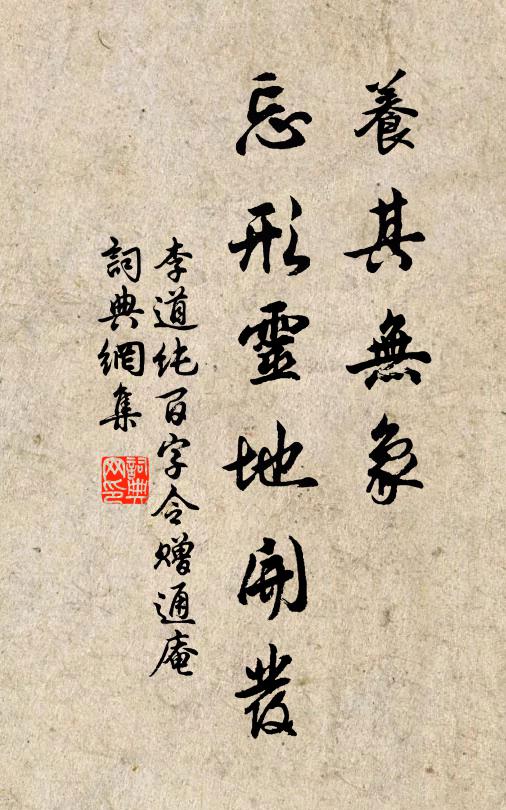 養其無象
忘形靈地開發
李道纯百字令赠通庵
詞典網集
詞典网印